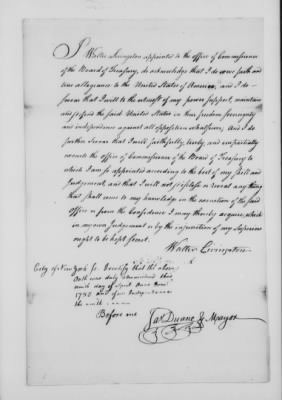 I Walter Livingston appointed to the office of Commissioner
of the Board of Treasury, do acknowledge that I do owe faith and
true allegiance to the United States of America, and I do
swear that I will to the utmost of my power support, maintain
and defend the said United States in their freedom sovereignty
and independence against all opposition whatsoever. And I do
further swear that I will faithfully, truly, and impartially
execute the office of Commissioner of the Board of Treasury to
which I am so appointed according to the best of my skill and
Judgement, and that I will not disclose or reveal any thing
that shall come to my knowledge in the execution of the said
office or from the confidence I may thereby acquire, which
in my own Judgement or by the injunction of my Superiors
ought to be kept secret.
Walter Livingston
City of New York ss. I certify that the above
Oath was duly administered this
ninth day of April Anno Dom
and of our Independence
the ninth
Before me
Jas Duane Mayor